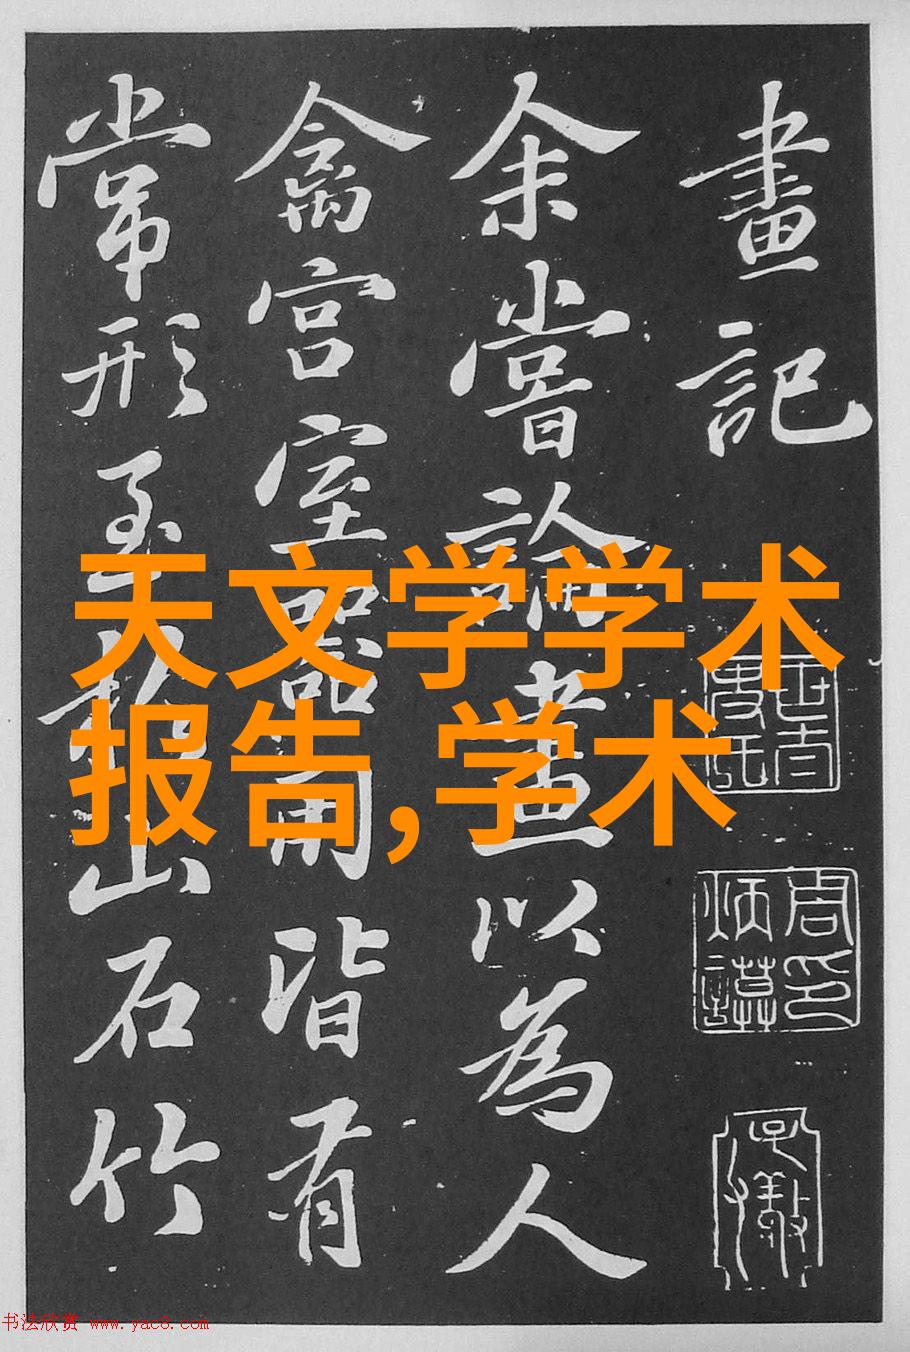 畫記
余嘗論畫以為人
禽宮室器用皆有
常形至於山石竹
天文学学术
报告,学术
周印
炳謨
书法欣赏 www.yac8.com